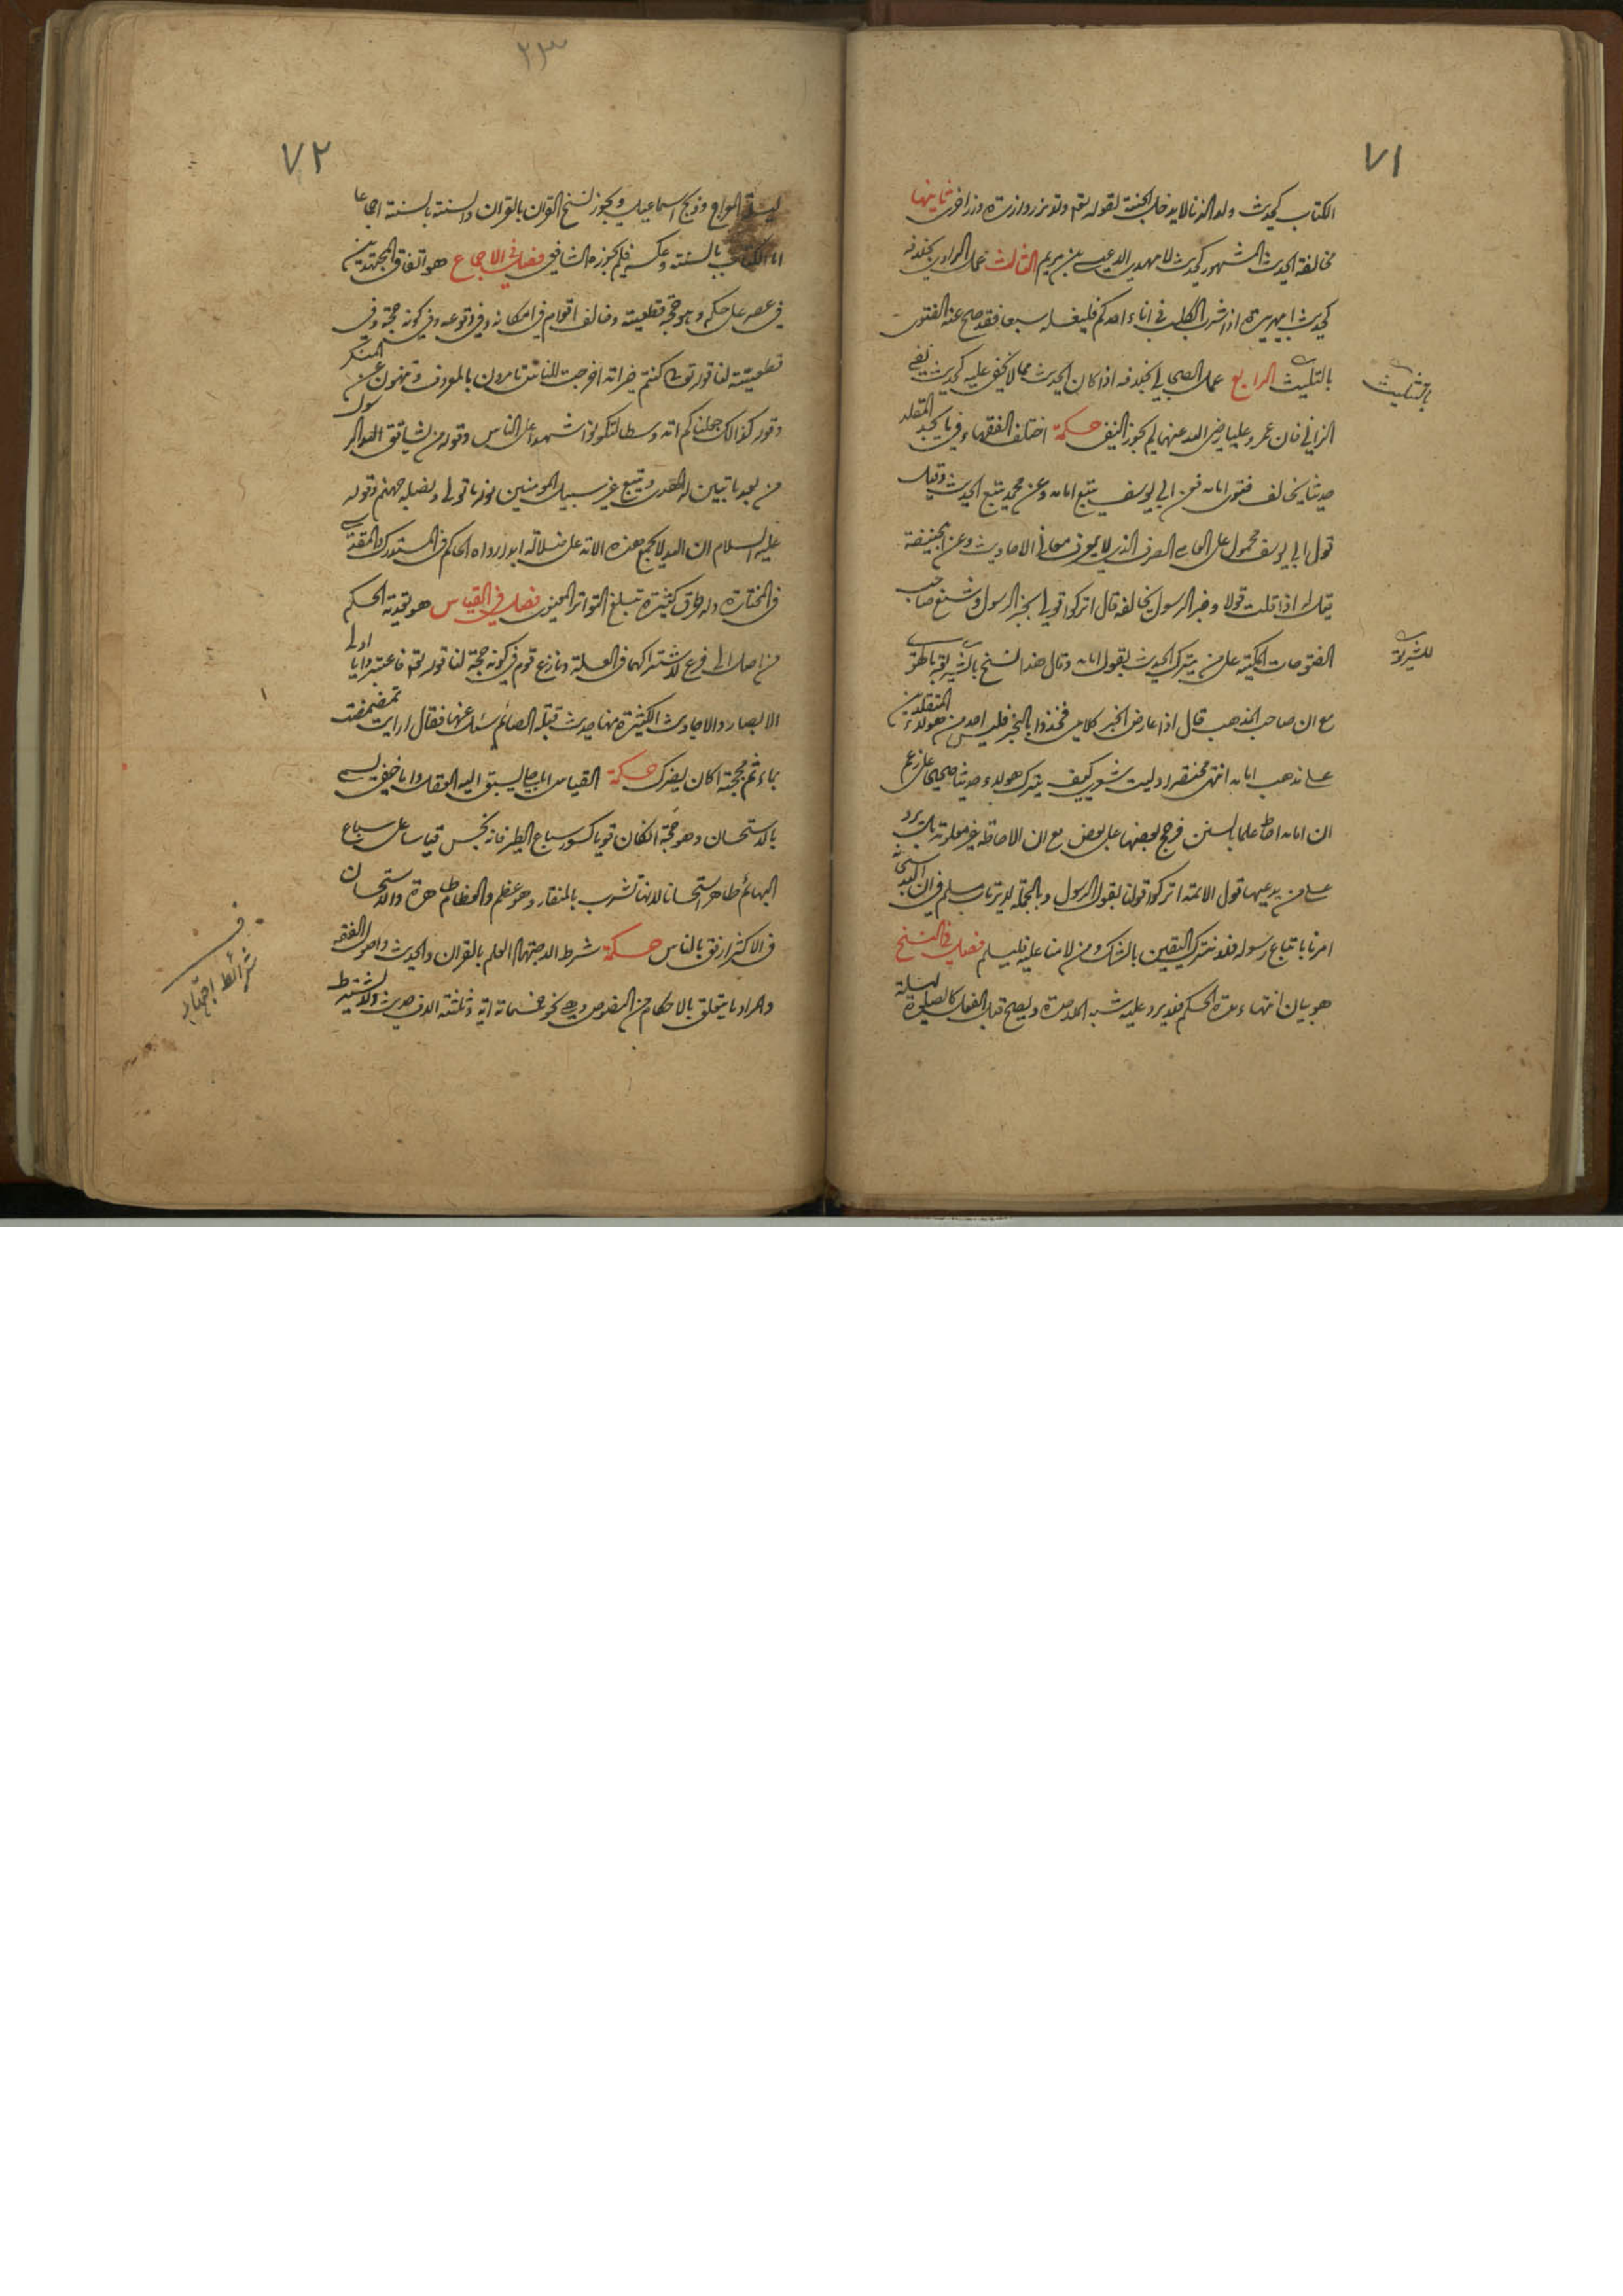 ٧١
الكتاب كحديث ولد الزنا لا يدخل الجنة لقوله تعم ولا تزر وازرة وزر اخرى ثانيها
مخالفة الحديث المشهور كحديث لا مهدي الا عيسى بن مريم الثالث عمل الراوي بخلافه
كحديث ابيهريرة اذا شرب الكلب في اناء احدكم فليغسله سبعا فقد صح عنه الفتوى
بالتثليث الرابع عمل الصحابي بخلافه اذا كان الحديث مما لا يخفى عليه كحديث نفي
الزاني فان عمر وعليا رضي الله عنهما لم يجوز النفي حكمة اختلف الفقهاء في ما يجد المقلد
حديثا يخالف فتوى امامه فعن ابي يوسف يتبع امامه وعن محمد يتبع الحديث وقيل
قول ابي يوسف محمول على العامي الصرف الذي لا يعرف معاني الاحاديث وعن ابيحنيفة
قيل له اذا قلت قولا وخبر الرسول يخالفه قال اتركوا قولي بخبر الرسول وشنع صاحب
الفتوحات المكية على من يترك الحديث بقول امامه وقال هذا نسخ بالشريعة بالهوى
مع ان صاحب المذهب قال اذا عارض الخبر كلامي فخذوا بالخبر فليس احد من هولاء المقلدين
على مذهب امامه انتهى مختصرا وليت شعري كيف يترك هولاء حديثا صحيحا على زعم
ان امامه احاط علما بالسنن فرجح بعضها على بعض مع ان الاحاطة غير معلومة بل يرد
على من يدعيها قول الائمة اتركوا قولنا بقول الرسول وبالجملة لا يرتاب مسلم في ان الله سبحانه
امرنا باتباع رسوله فلا نترك اليقين بالشك ومن لامنا عليه فليسلم فصل في النسخ
هو بيان انتهاء مدة الحكم فلا يرد عليه شبه الملاحدة ويصح قبل الفعل كالصلوة ليلة
بالتثليث
للشريعة
٢٣
٧٢
ليلة المعراج وذبح اسماعيل ويجوز نسخ القران بالقران والسنة بالسنة اجماعا
اما الكتاب بالسنة وعكسه فلم يجوزه الشافعي فصل في الاجماع هو اتفاق المجتهدين
في عصر على حكم وهو حجة قطعية وخالف اقوام في امكانه وفي وقوعه وفي كونه حجة وفي
قطعيته لنا قوله تعالى كنتم خير امة اخرجت للناس تامرون بالمعروف وتنهون عن المنكر
وقوله كذالك جعلناكم امة وسطا لتكونوا شهداء على الناس وقوله من يشاقق الرسول
من بعد ما تبين له الهدى ويتبع غير سبيل المومنين نوله ما تولى ونصله جهنم وقوله
عليه السلام ان الله لا يجمع هذه الامة على ضلالة ابدا رواه الحاكم في المستدرك والمقدسي
في المختارة وله طرق كثيرة تبلغ التواتر المعنوي فصل في القياس هو تعدية الحكم
من اصل الى فرع لاشتراكهما في العلة ونازع قوم في كونه حجة لنا قوله تعم فاعتبروا يا اولى
الابصار والاحاديث الكثيرة منها حديث قبلة الصائم سئل عنها فقال ارايت تمضمضت
بماء ثم مججته اكان يضرك حكمة القياس اما جلي يسبق اليه العقل واما خفي يسمى
بالاستحسان وهو حجة ان كان قويا كسور سباع الطير فانه نجس قياسا على سباع
البهائم طاهر استحسانا لانها تشرب بالمنقار وهو عظم والعظام طاهرة والاستحسان
في الاكثر ارفق بالناس حكمة شرط الاجتهاد العلم بالقران والحديث واصول الفقه
والمراد ما يتعلق بالاحكام من النصوص وهي نحو خمسمائة اية وثلثة الاف حديث ولا يشترط
ف
شرائط اجتهاد